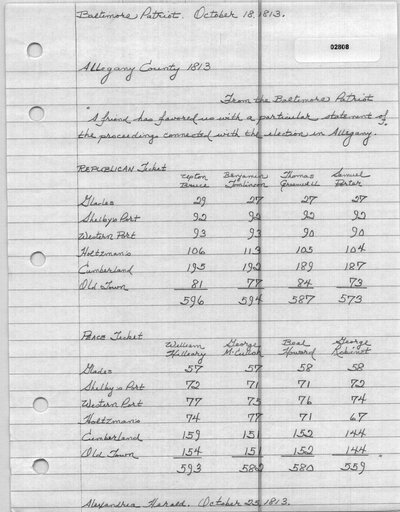 Baltimore Patriot. October 18, 1813.
02808
Allegany County 1813
From the Baltimore Patriot
"A friend has favored us with a particular statement of
the proceedings connected with the election in Allegany.
REPUBLICAN Ticket
Upton Benjamin Thomas Samuel
Bruce Tomlinson Greenwell Porter
Glades 29 27 27 27
Shelby's Port 92 92 92 92
Western Port 93 93 90 90
Holtzman's 106 113 105 104
Cumberland 195 192 189 187
Old Town 81 77 84 73
596 594 587 573
PEACE Ticket
William George Beal George
Hilleary McCulloh Howard Robinet
Glades 57 57 58 58
Shelby's Port 72 71 71 72
Western Port 77 75 76 74
Holtzman's 74 77 71 67
Cumberland 159 151 152 144
Old Town 154 151 152 144
593 582 580 559
Alexandria Herald. October 25, 1813.